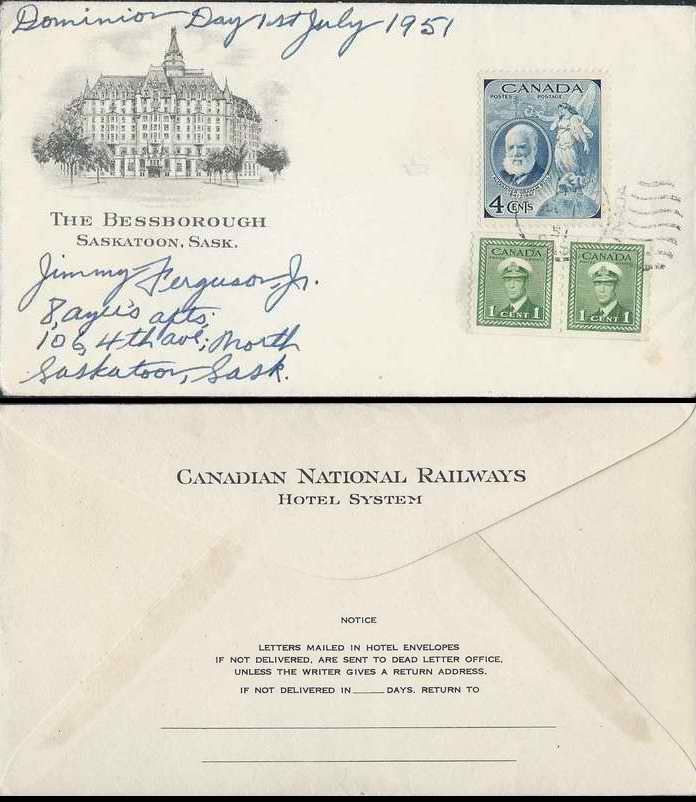 Dominion Day 1st July 1951
CANADA
POSTES POSTAGE
4 CENTS
THE BESSBOROUGH
SASKATOON, SASK.
CANADA
1 CENT 1
CANADA
1 CENT 1
Jimmy Ferguson, Jr.
8, ayer's apts;
106, 4th ave; North
Saskatoon, Sask.
CANADIAN NATIONAL RAILWAYS
HOTEL SYSTEM
NOTICE
LETTERS MAILED IN HOTEL ENVELOPES
IF NOT DELIVERED, ARE SENT TO DEAD LETTER OFFICE,
UNLESS THE WRITER GIVES A RETURN ADDRESS.
IF NOT DELIVERED IN____DAYS. RETURN TO